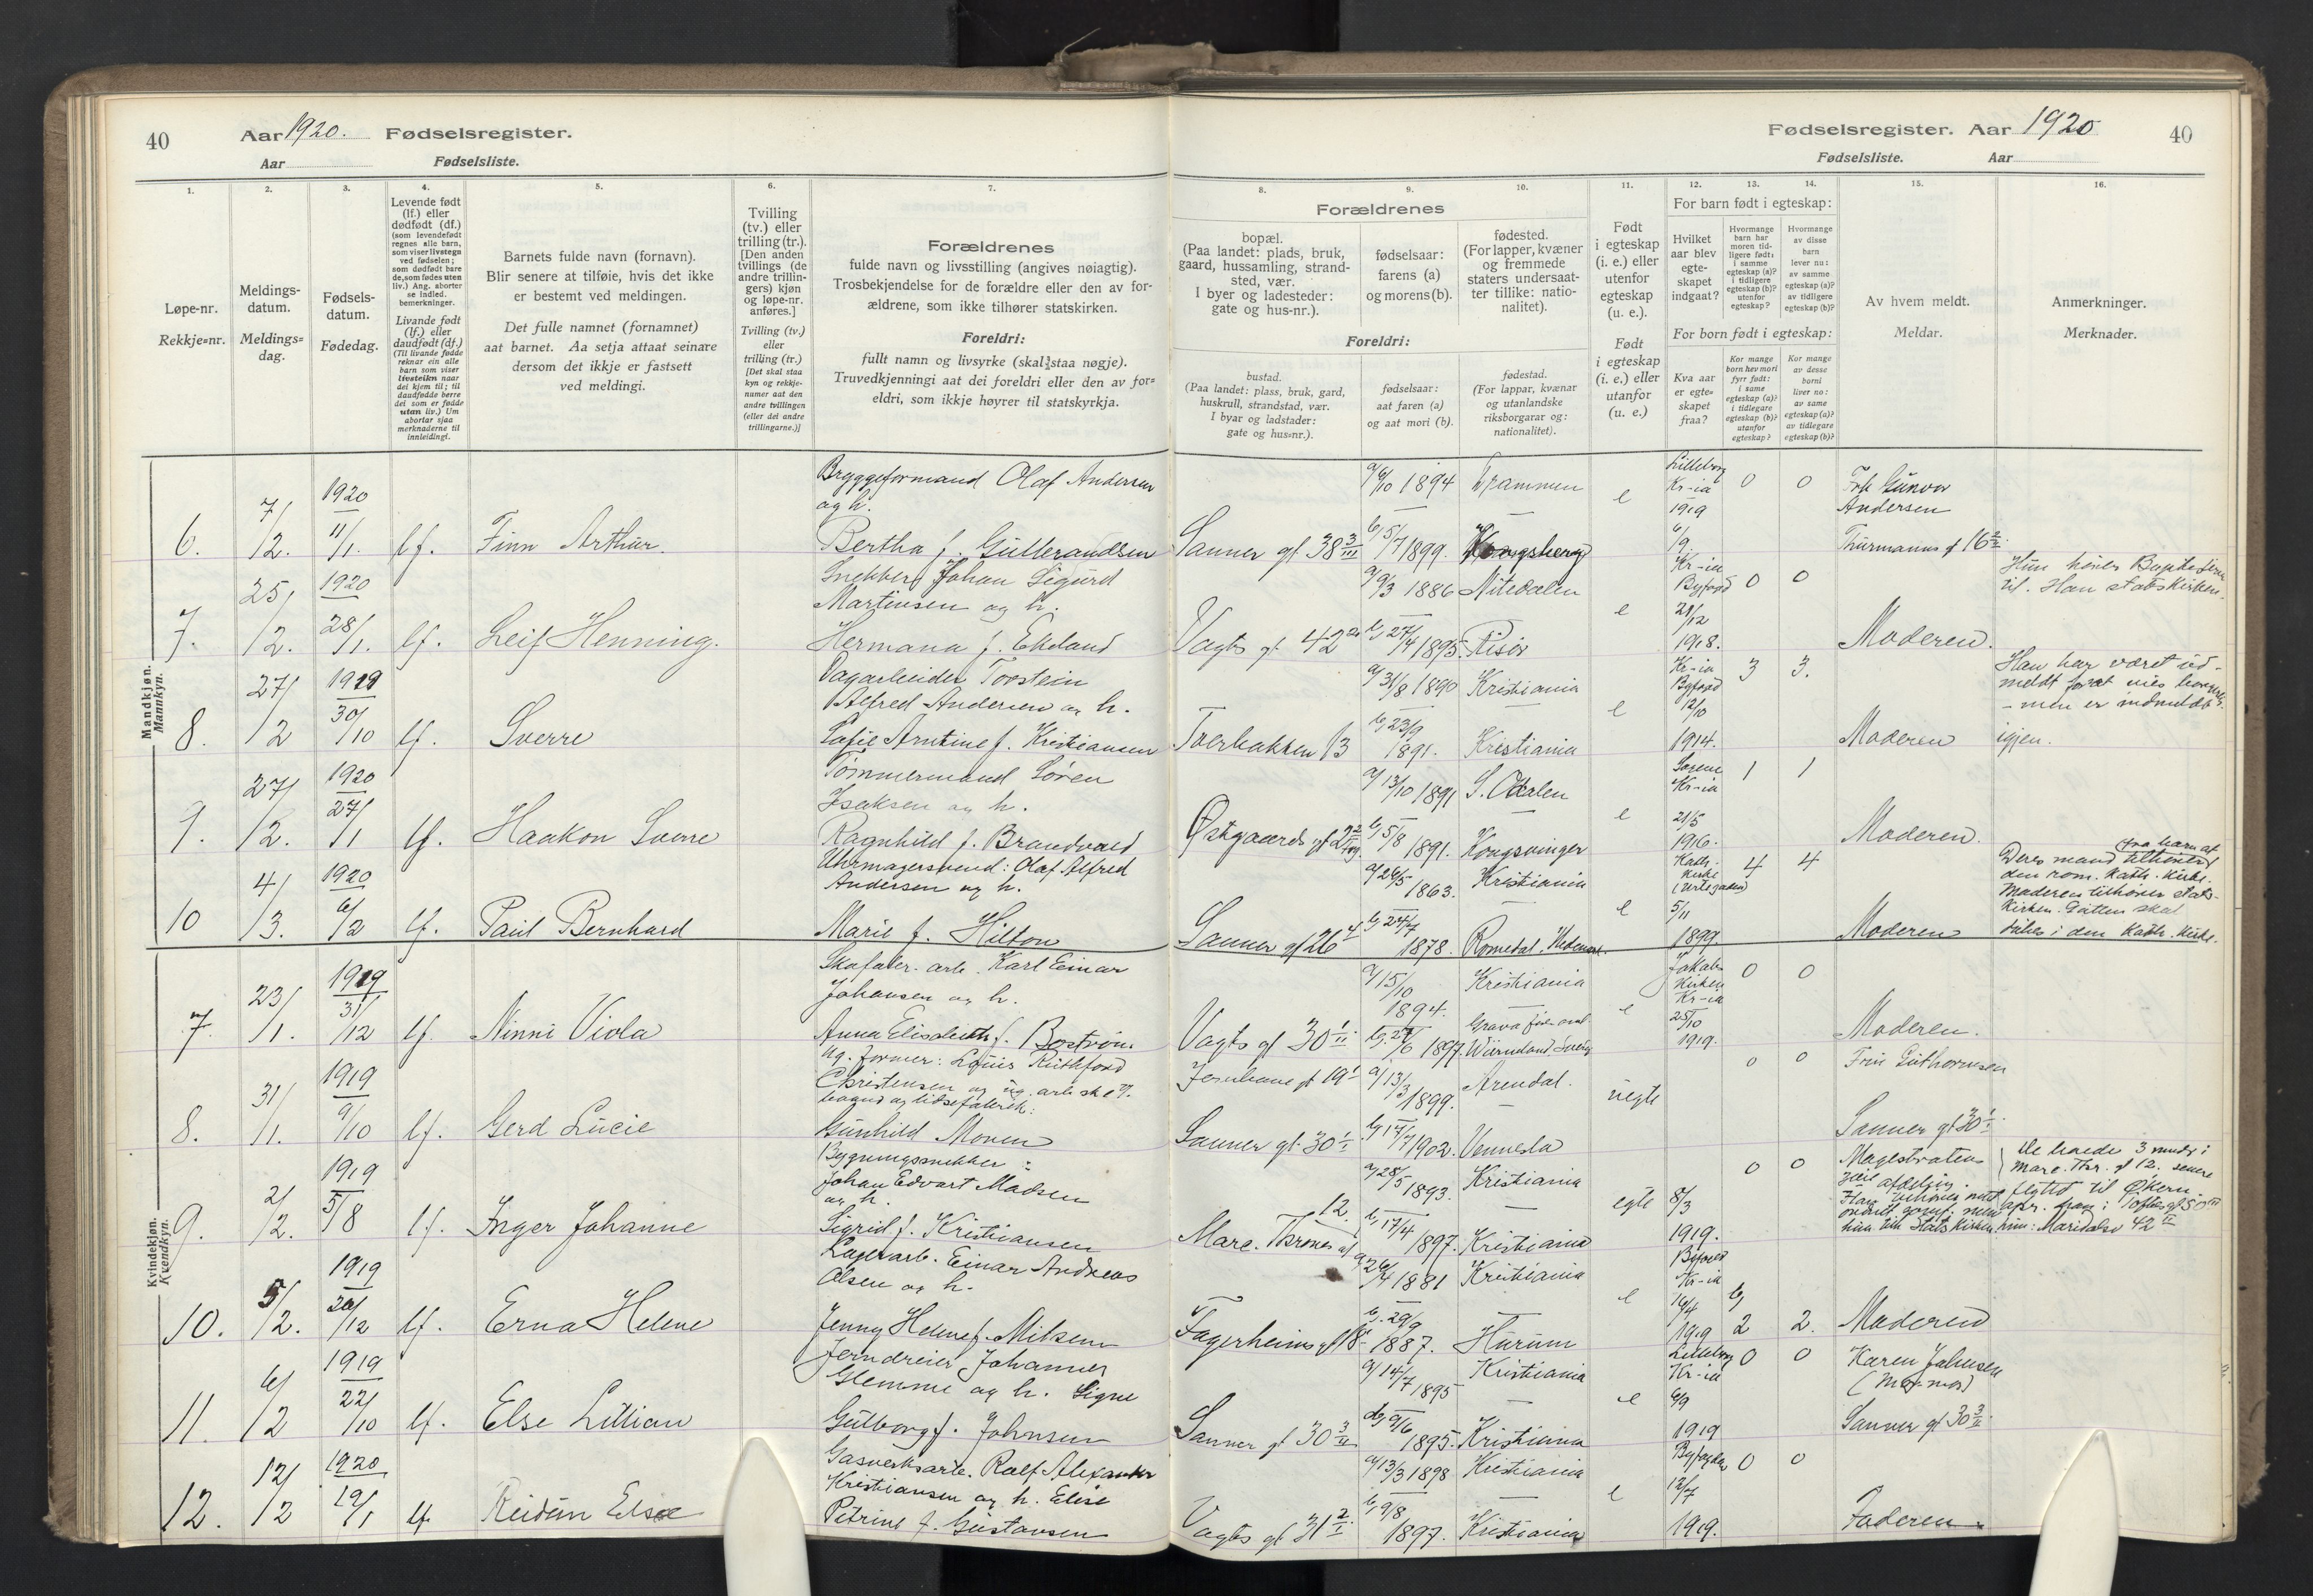 40
Aar 1920. Fødselsregister.
Aar
Fødselsliste.
1.
2.
3.
4.
5.
6.
7.
Løpe-nr.
Rekkje=nr.
Meldings-
datum.
Meldings=
dag.
Fødsels-
datum.
Fødedag.
Levende født
(lf.) eller
dødfødt (df.)
(som levendefødt
regnes alle barn,
som viser livstegn
ved fødselen;
som dødfødt bare
de, som fødes uten
liv.) Ang. aborter
se indled.
bemerkninger.
Livande født
(lf.) eller
daudfødt (df.)
(Til livande fødde
reknar ein alle
barn som viser
livsteikn naar
dei kjem til; til
daudfødde berre
dei som er fødde
utan liv.) Um
abortar sjaa
merknaderne til
innleidingi.
Barnets fulde navn (fornavn).
Blir senere at tilføie, hvis det ikke
er bestemt ved meldingen.
Det fulle namnet (fornamnet)
aat barnet. Aa setja attaat seinare
dersom det ikkje er fastsett
ved meldingi.
Tvilling
(tv.) eller
trilling (tr.).
[Den anden
tvillings (de
andre trillin-
gers) kjøn
og løpe-nr.
anføres.]
Tvilling (tv.)
eller
trilling (tr.)
[Det skal staa
kyn og rekkje-
numer aat den
andre tvillingen
(eller dei andre
trillingarne.)]
Forældrenes
fulde navn og livsstilling (angives nøiagtig).
Trosbekjendelse for de forældre eller den av for-
ældrene, som ikke tilhører statskirken.
Foreldri:
fullt namn og livsyrke (skal staa nøgje).
Truvedkjenningi aat dei foreldri eller den av for=
eldri, som ikkje høyrer til statskyrkja.
Mandkjøn.
Mannkyn.
6.
7/2.
1920
11/1.
lf.
Finn Arthur.
Bryggeformand Olaf Andersen
og h.
Bertha f. Gullerandsen
7.
25/2.
1920
28/1.
lf.
Leif Henning.
Snekker Johan Sigurd
Martinsen og h.
Hermana f. Ekeland
8.
27/2
1919
30/10
lf.
Sverre
Vagarbeider Torstein
Alfred Andersen og h.
Sofie Arntine f. Kristiansen
9.
27/2.
1920
27/1
lf.
Haakon Sverre
Tømmermand Søren
Isaksen og h.
Ragnhild f. Brandvold
10
4/3.
1920
6/2
lf.
Paul Bernhard
Uhrmagersvend: Olaf Alfred
Andersen og h.
Marie f. Hilton
Kvindekjøn.
Kvendkyn.
7.
23/1.
1919
31/12
lf.
Ninni Viola
Skofabr. arb. Karl Einar
Johansen og h.
Anna Elisabeth f. Boström.
8.
31/1.
1919
9/10
lf.
Gerd Lucie
Ug. former: Louis Ruthford
Christensen og ug. arb.
Gunhild Moren
9.
2/2.
1919
5/8
lf.
Inger Johanne
Bygningssnekker:
Johan Edvart Madsen
og h.
Sigrid f. Kristiansen
10.
5/2.
1919
/12
lf.
Erna Helene
Lagerarb. Einar Andreas
Olsen og h.
Jenny Helene f. Nilsen
11.
6/2
1919
22/10
lf.
Else Lillian
Jerndreier Johannes
Glemme og h. Signe
Gulborg f. Johnsen
12.
12/2
1920
19/1
lf.
Reidun Else
Gasverksarb. Rolf Alexander
Kristiansen og h. Elise
Petrine f. Gustavsen
Fødselsregister. Aar 1920
40
Fødselsliste. Aar
8.
9.
10.
11.
12.
13.
14.
15.
16.
Forældrenes
bopæl.
(Paa landet: plads, bruk,
gaard, hussamling, strand-
sted, vær.
I byer og ladesteder:
gate og hus-nr.).
fødselsaar:
farens (a)
og morens (b).
fødested.
(For lapper, kvæner
og fremmede
staters undersaat-
ter tillike: natio-
nalitet).
Foreldri:
bustad.
(Paa landet: plass, bruk, gard,
huskrull, strandstad, vær.
I byar og ladstader:
gate og hus=nr.).
fødselsaar:
aat faren (a)
og aat mori (b).
fødestad.
(For lappar, kvænar
og utanlandske
riksborgarar og:
nationalitet).
Født
i egteskap
(i. e.) eller
utenfor
egteskap
(u. e.).
Født
i egteskap
(i. e.) eller
utanfor
(u. e.)
For barn født i egteskap:
Hvilket
aar blev
egte-
skapet
indgaat?
Hvormange
barn har
moren tid-
ligere født:
i samme
egteskap (a)?
i tidligere
egteskap (b)?
utenfor
egteskap?
Hvormange
av disse
barn
lever nu:
av samme
egteskap (a)?
av tidligere
egteskap (b)?
For born født i egteskap:
Kva aar
er egte=
skapet
fraa?
Kor mange
born hev mori
fyrr født:
i same
egteskap (a)?
i tidlegare
egteskap (b)?
utanfor
egteskap?
Kor mange
av desse
borni
liver no:
av same
egteskap (a)?
av tidlegare
egteskap (b)?
Av hvem meldt.
Meldar.
Anmerkninger.
Merknader.
a/ 6/10 1894
Drammen
e
Lilleborg
Kr-ia
1919
0
0
Frk Gunvor
Andersen
Sanner gt 38 3/III
b/ 5/7 1899.
Kongsberg
6/9.
Thurmanns gt 16
a/ 9/3 1886
Nitedalen
e
Kr-ia
Byfogd
0
0
Hun hører
til. Han statskirken.
Vagts gt 42
b/ 27/4 1895.
Risør
21/12
1918.
Moderen.
a/ 31/8 1890
Kristiania
e
Kr-ia
Byfogd
3
3.
Han har været ud-
meldt
– men er indmeldt
igjen.
Tverbakken 13
b/ 23/9
1891.
Kristiania
12/10
1914.
Moderen
a/ 13/10 1891
S. Odalen
e
Kr-ia
1
1
Østgaards gt
b/ 5/8 1891.
Kongsvinger
21/5
1916.
Moderen.
a/ 26/5
1863.
Kristiania
e
Kath.
Kirke
4
4
fra barn af
Deres mand tilhører
den rom. kath. kirke.
Moderen tilhører stats-
kirken. Gutten skal
døbes i den kath. kirke.
Sanner gt 26
b/ 24/7
1878.
Romedal. Hedemark.
5/11
1899.
Moderen
a/ 15/10
1894.
Kristiania
e
Jakobs
Kirken
Kr-ia
0
0
Vagts gt 30 1/II.
b/ 27/6 1897.
25/10
1919.
Moderen.
Jernbane gt 19
a/ 13/3
1899.
Arendal.
uegte
0
0
Sanner gt 30 1/I.
b/ 14/7 1902.
Vennesla
Sanner gt 30
a/ 28/5 1893.
Kristiania
egte
8/3
0
0
Magistratens
De boede 3 mndr i
Marc. Thr. gt 12. senere
flyttet til Økern.
hun til Statskirken
hun: Maridalsv 42
12.
Marc. Thranes gt
b/ 17/4
1897.
Kristiania
1919.
a/ 26/4 1881
Kristiania
e
Byfogd
Kr-ia
Fagerheims gt 18
b/ 29/9
1887.
Hurum
16/4
1919
b/
2
2.
Moderen
a/ 14/7
1895
Kristiania
e
Lilleborg
Kr-ia
0
0
Karen Johnsen
(Mormor)
Sanner gt 30 3/II
9/6
1895.
Kristiania
6/9
1919
Sanner gt 30 3/II.
a/ 13/3 1898
Kristiania
e
Byfogden
0
0
Vagts gt 31 2/I.
b/ 9/8
1897.
Kristiania
12/7
1919.
Faderen.